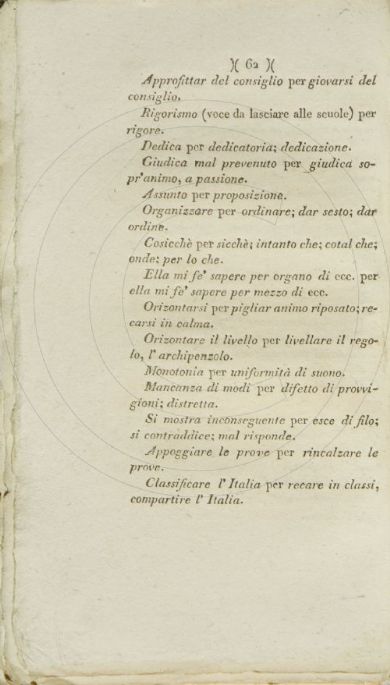 )( 62 )(
Approfittar del consiglio per giovarsi del
consiglio.
Rigorismo (voce da lasciare alle scuole) per
rigore.
Dedica per dedicatoria; dedicazione.
Giudica mal prevenuto per giudica so-
pr'animo, a passione.
Assunto per proposizione.
Organizzare per ordinare; dar sesto; dar
ordine.
Cosicchè per sicchè; intanto che; cotal che;
onde; per lo che.
Ella mi fe' sapere per organo di ecc. per
ella mi fe' sapere per mezzo di ecc.
Orizontarsi per pigliar animo riposato; re-
carsi in calma.
Orizontare il livello per livellare il rego-
lo, l'archipenzolo.
Monotonia per uniformità di suono.
Mancanza di modi per difetto di provvi-
gioni; distretta.
Si mostra inconseguente per esce di filo;
si contraddice; mal risponde.
Appoggiare le prove per rincalzare le
prove.
Classificare l'Italia per recare in classi,
compartire l'Italia.